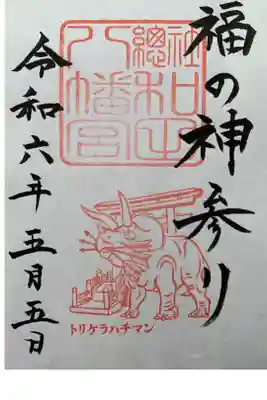 福の神参り
總社
和田
八幡宮
トリケラハチマン
令和六年五月五日